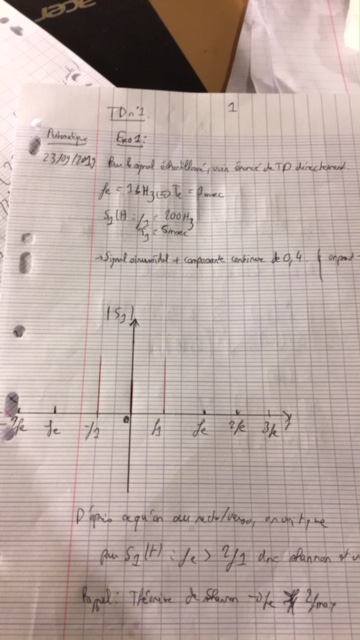 acer
TD n°1. 1
Automatique Exo 1:
23/09/2019 Pour le signal échantillonné, voir énoncé de TD directement.
fe = 1kHz <=> Te = 1msec
S1(t) : f1 = 200Hz
T1 = 5msec
→ Signal sinusoïdal + composante continue de 0,4 (on prend
|S1|
-2fe fe -f1 0 f1 fe 2fe 3fe f
D'après ce qu'on a vu recto/verso, on a
pour S1(t) : fe > 2f1 donc shannon est
Rappel: Théorème de Shannon → fe 2fmax